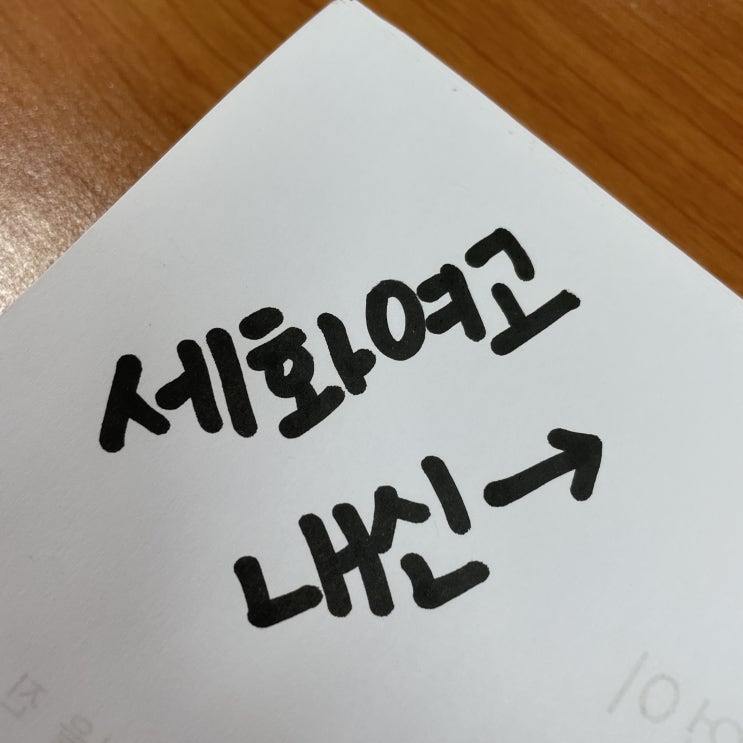 세화여고
내신→